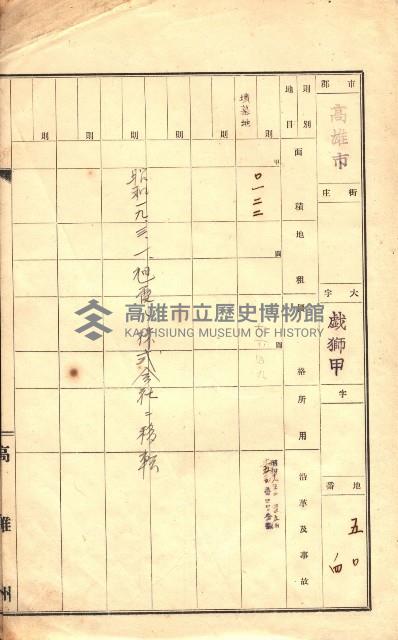 市 郡
高雄市
街 庄
大字
戲獅甲
字
地番
五〇
四
則別
地目
面積
地租
價格
所用
沿革及事故
則
墳墓地
甲
〇一二二
圓
圓
則
則
則
則
則
則
昭和一九、三、一、
株式会社ニ移転
高雄州
高雄市立歷史博物館
KAOHSIUNG MUSEUM OF HISTORY